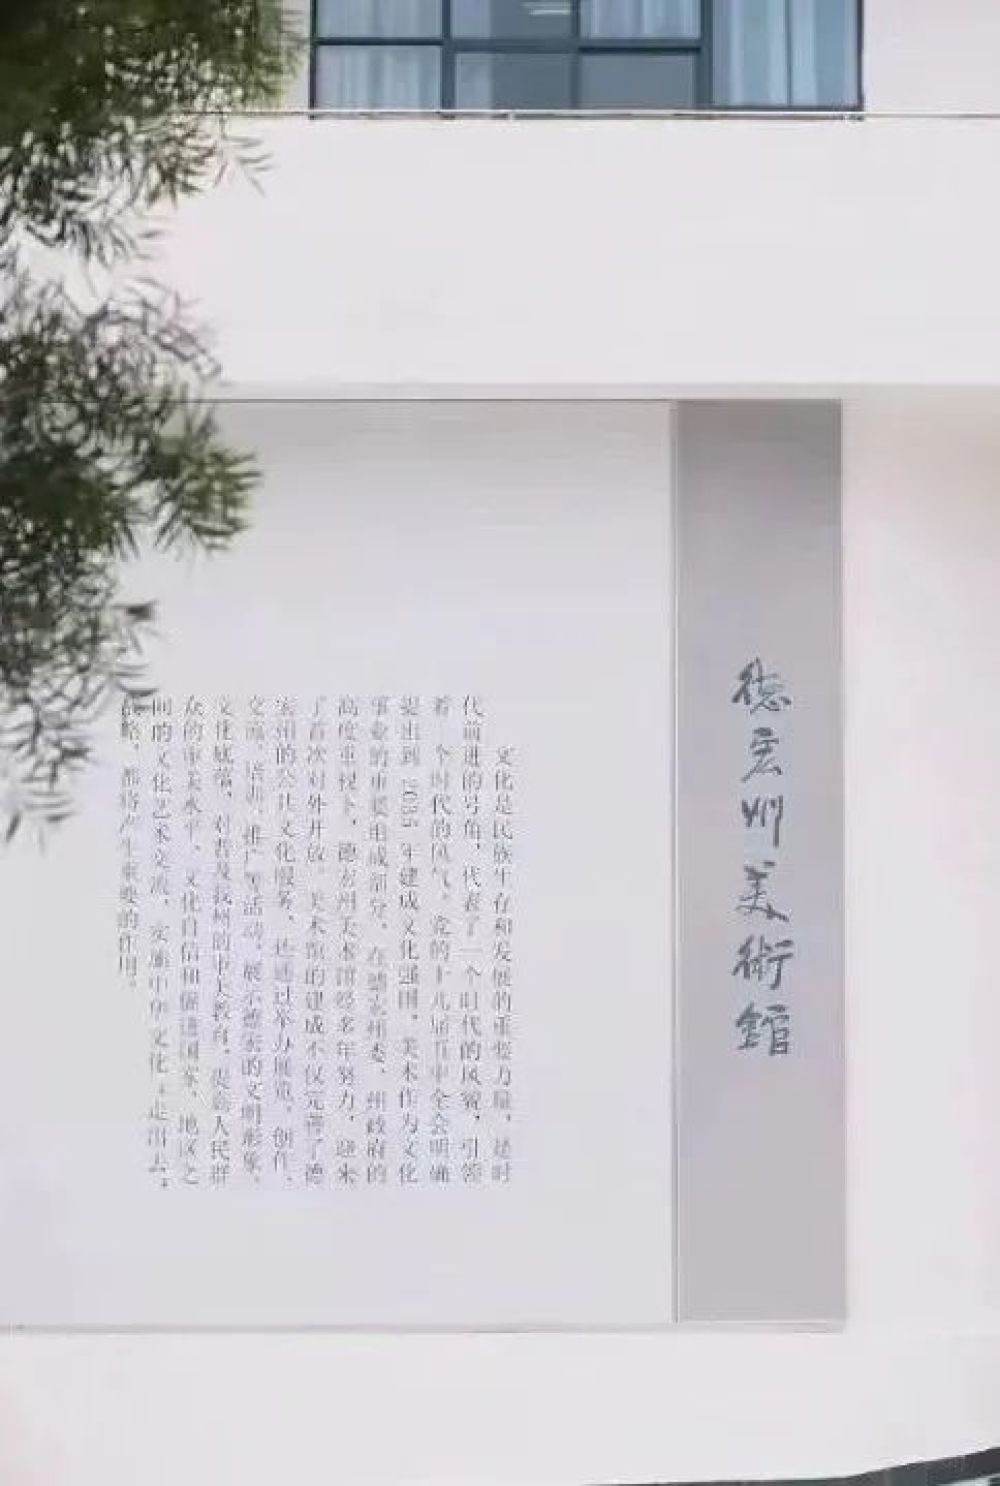 德宏州美術館
文化是民族生存和发展的重要力量，是时
代前进的号角，代表了一个时代的风貌，引领
着一个时代的风气。党的十九届五中全会明确
提出到 2035 年建成文化强国，美术作为文化
事业的重要组成部分，在德宏州委、州政府的
高度重视下，德宏州美术馆经多年努力，迎来
了首次对外开放。美术馆的建成不仅完善了德
宏州的公共文化服务，还通过举办展览、创作、
交流、培训、推广等活动，展示德宏的文明形象、
文化底蕴，对普及我州的审美教育，提高人民群
众的审美水平、文化自信和促进国家、地区之
间的文化艺术交流，实施中华文化“走出去”
战略，都将产生重要的作用。